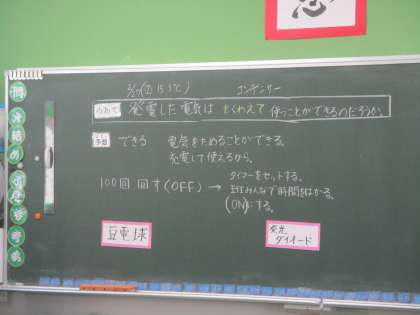 コンデンサー
めあて 発電した電気は たくわえて 使うことができるのだろうか。
予想 できる 電気をためることができる。
充電して使えるから。
100回 回す(OFF) → タイマーをセットする。
班みんなで時間をはかる。
(ON)にする。
豆電球
発光
ダイオード